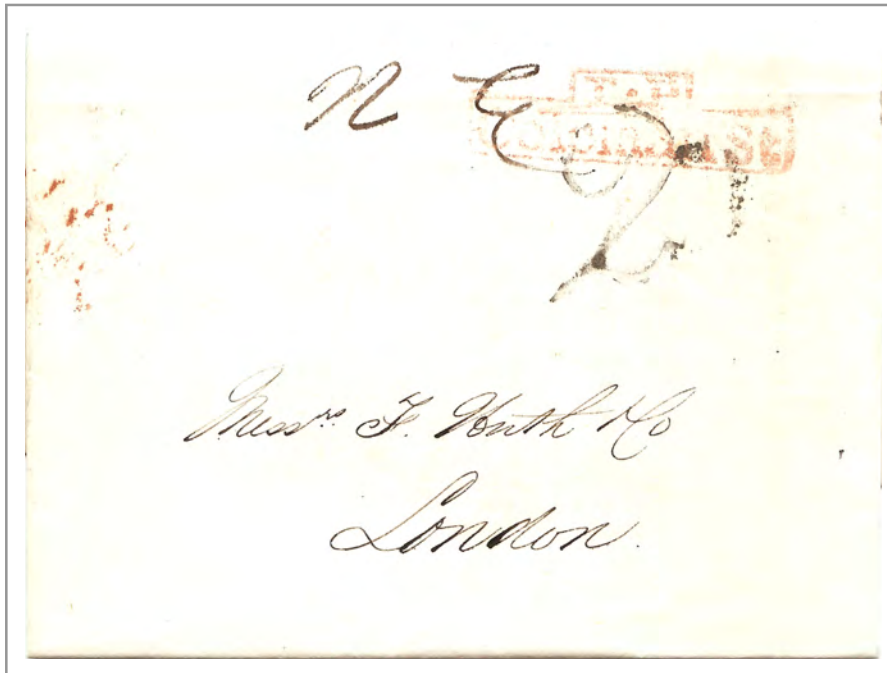 N E
T.P
2
Messrs. F. Huth & Co
London.